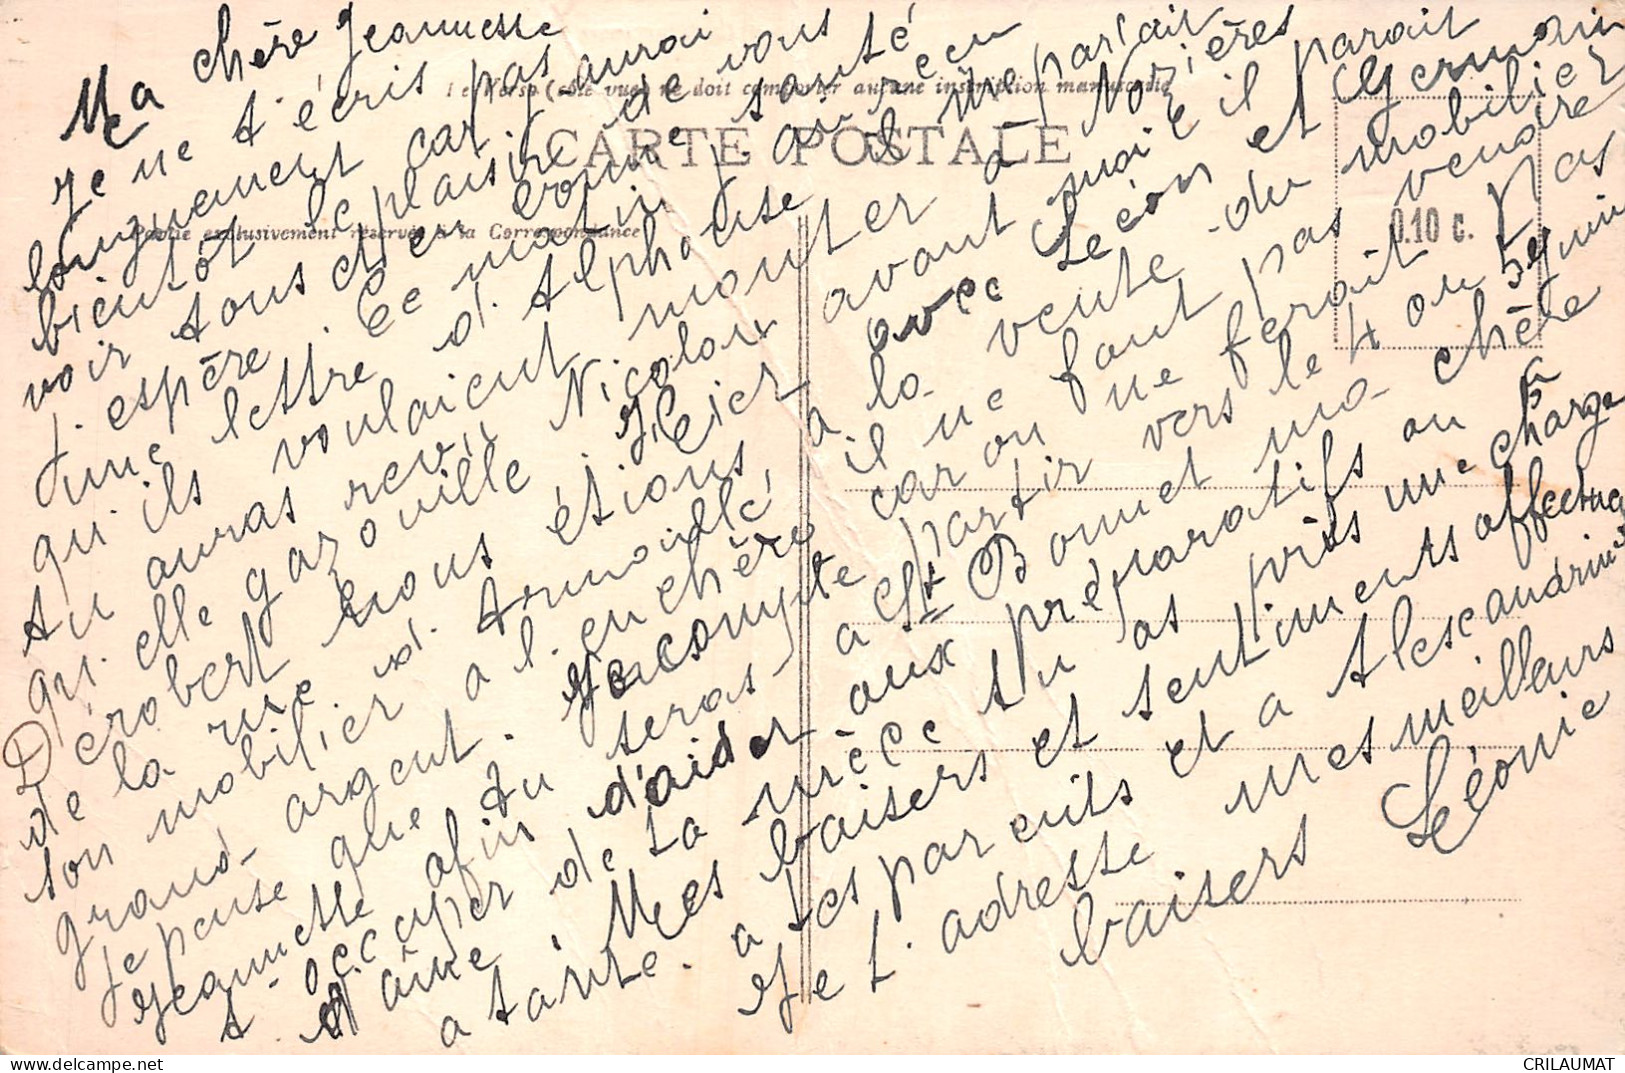 Le Verso (côté vue) ne doit comporter aucune inscription manuscrite
CARTE POSTALE
Partie exclusivement réservée à la Correspondance
0.10 c.
Ma chère Jeannesse
Je ne t'écris pas
longuement car j'aurai
bientôt le plaisir de vous
voir tous et en bonne santé
j'espère. Ce matin j'ai reçu
une lettre d'Alphonse il me parlait
qu'ils voulaient monter à Nozières
tu auras revu Nicoloux avant moi
qu'elle gazouille. Hier avec Léon et Germain
Dérobert nous étions à la vente du mobilier
de la rue d'Armaillé, il ne faut pas vendre
son mobilier à l'enchère car on ne ferait pas
grand argent. Je compte partir vers le 4 ou 5 juin
Je pense que tu seras à St Bonnet ma chère
Jeannette afin d'aider aux préparatifs ou à
t'occuper de la nièce tu as près une charge
d'âme. Mes baisers et sentiments affectueux
a tante. a tes parents et a Alescandrine
Je t'adresse mes meilleurs
baisers Léonie
CRILAUMAT